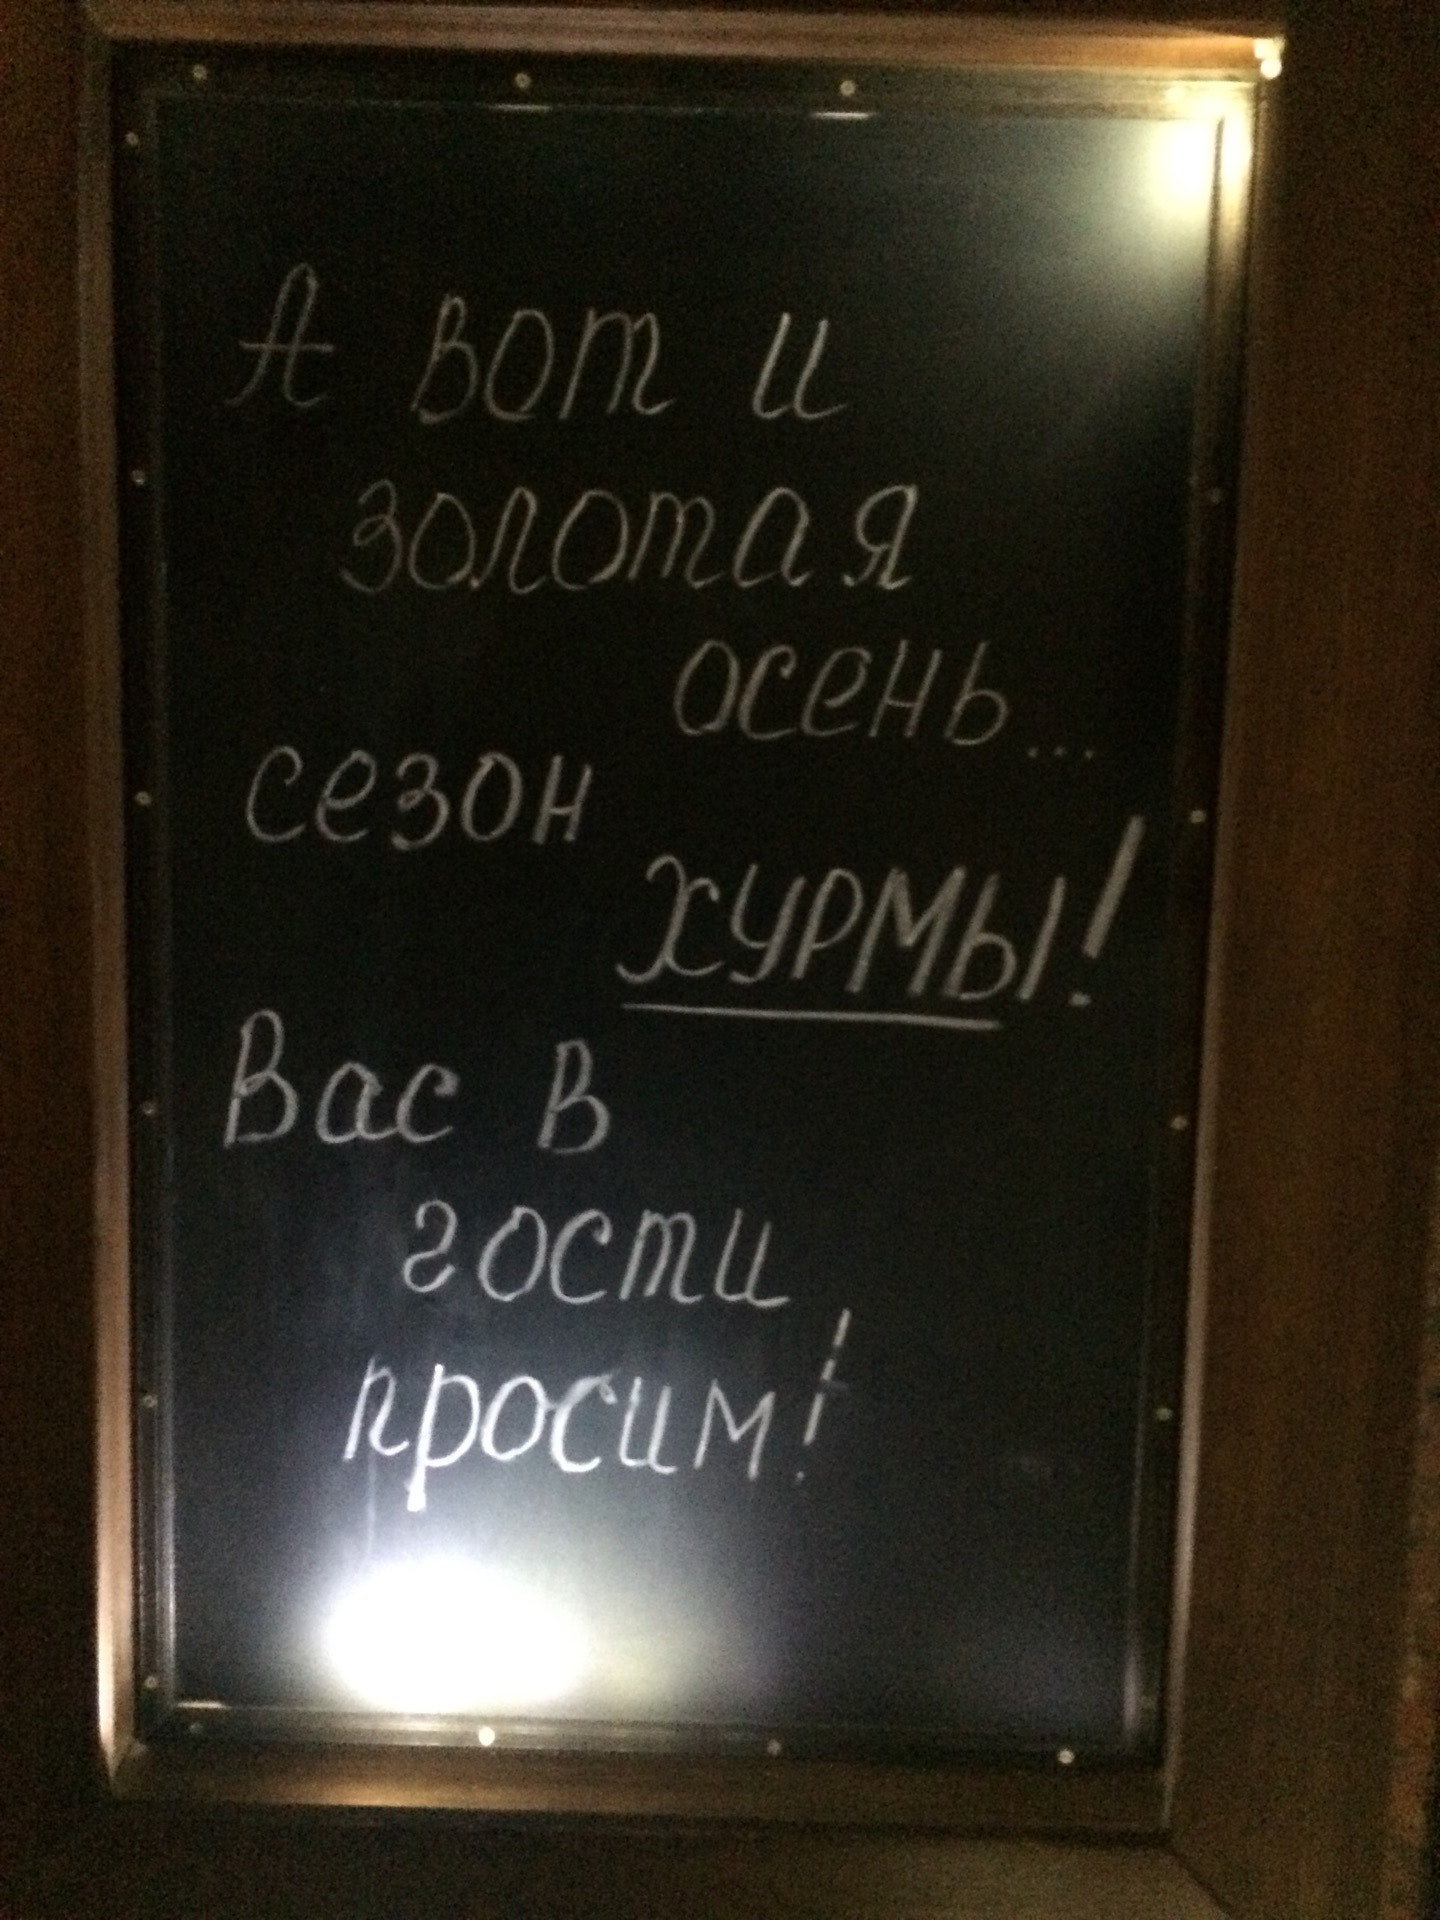 А вот и
золотая
осень...
сезон
ХУРМЫ!
Вас в
гости
просим!